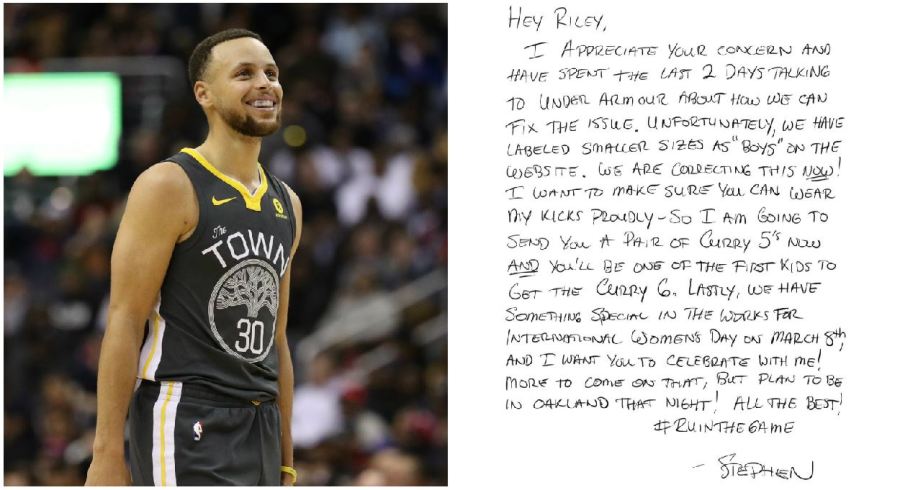 The
TOWN
30
HEY RILEY,
I APPRECIATE YOUR CONCERN AND
HAVE SPENT THE LAST 2 DAYS TALKING
TO UNDER ARMOUR ABOUT HOW WE CAN
FIX THE ISSUE. UNFORTUNATELY, WE HAVE
LABELED SMALLER SIZES AS "BOYS" ON THE
WEBSITE. WE ARE CORRECTING THIS NOW!
I WANT TO MAKE SURE YOU CAN WEAR
MY KICKS PROUDLY - SO I AM GOING TO
SEND YOU A PAIR OF CURRY 5'S NOW
AND YOU'LL BE ONE OF THE FIRST KIDS TO
GET THE CURRY 6. LASTLY, WE HAVE
SOMETHING SPECIAL IN THE WORKS FOR
INTERNATIONAL WOMENS DAY ON MARCH 8th,
AND I WANT YOU TO CELEBRATE WITH ME!
MORE TO COME ON THAT, BUT PLAN TO BE
IN OAKLAND THAT NIGHT! ALL THE BEST!
#RUINTHEGAME
- STEPHEN